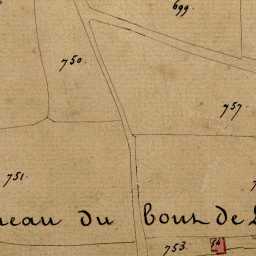 699
750.
757.
751.
neau du bout de
753.